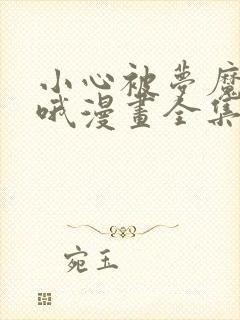 小心被夢魔
哦漫畫全集
宛玉